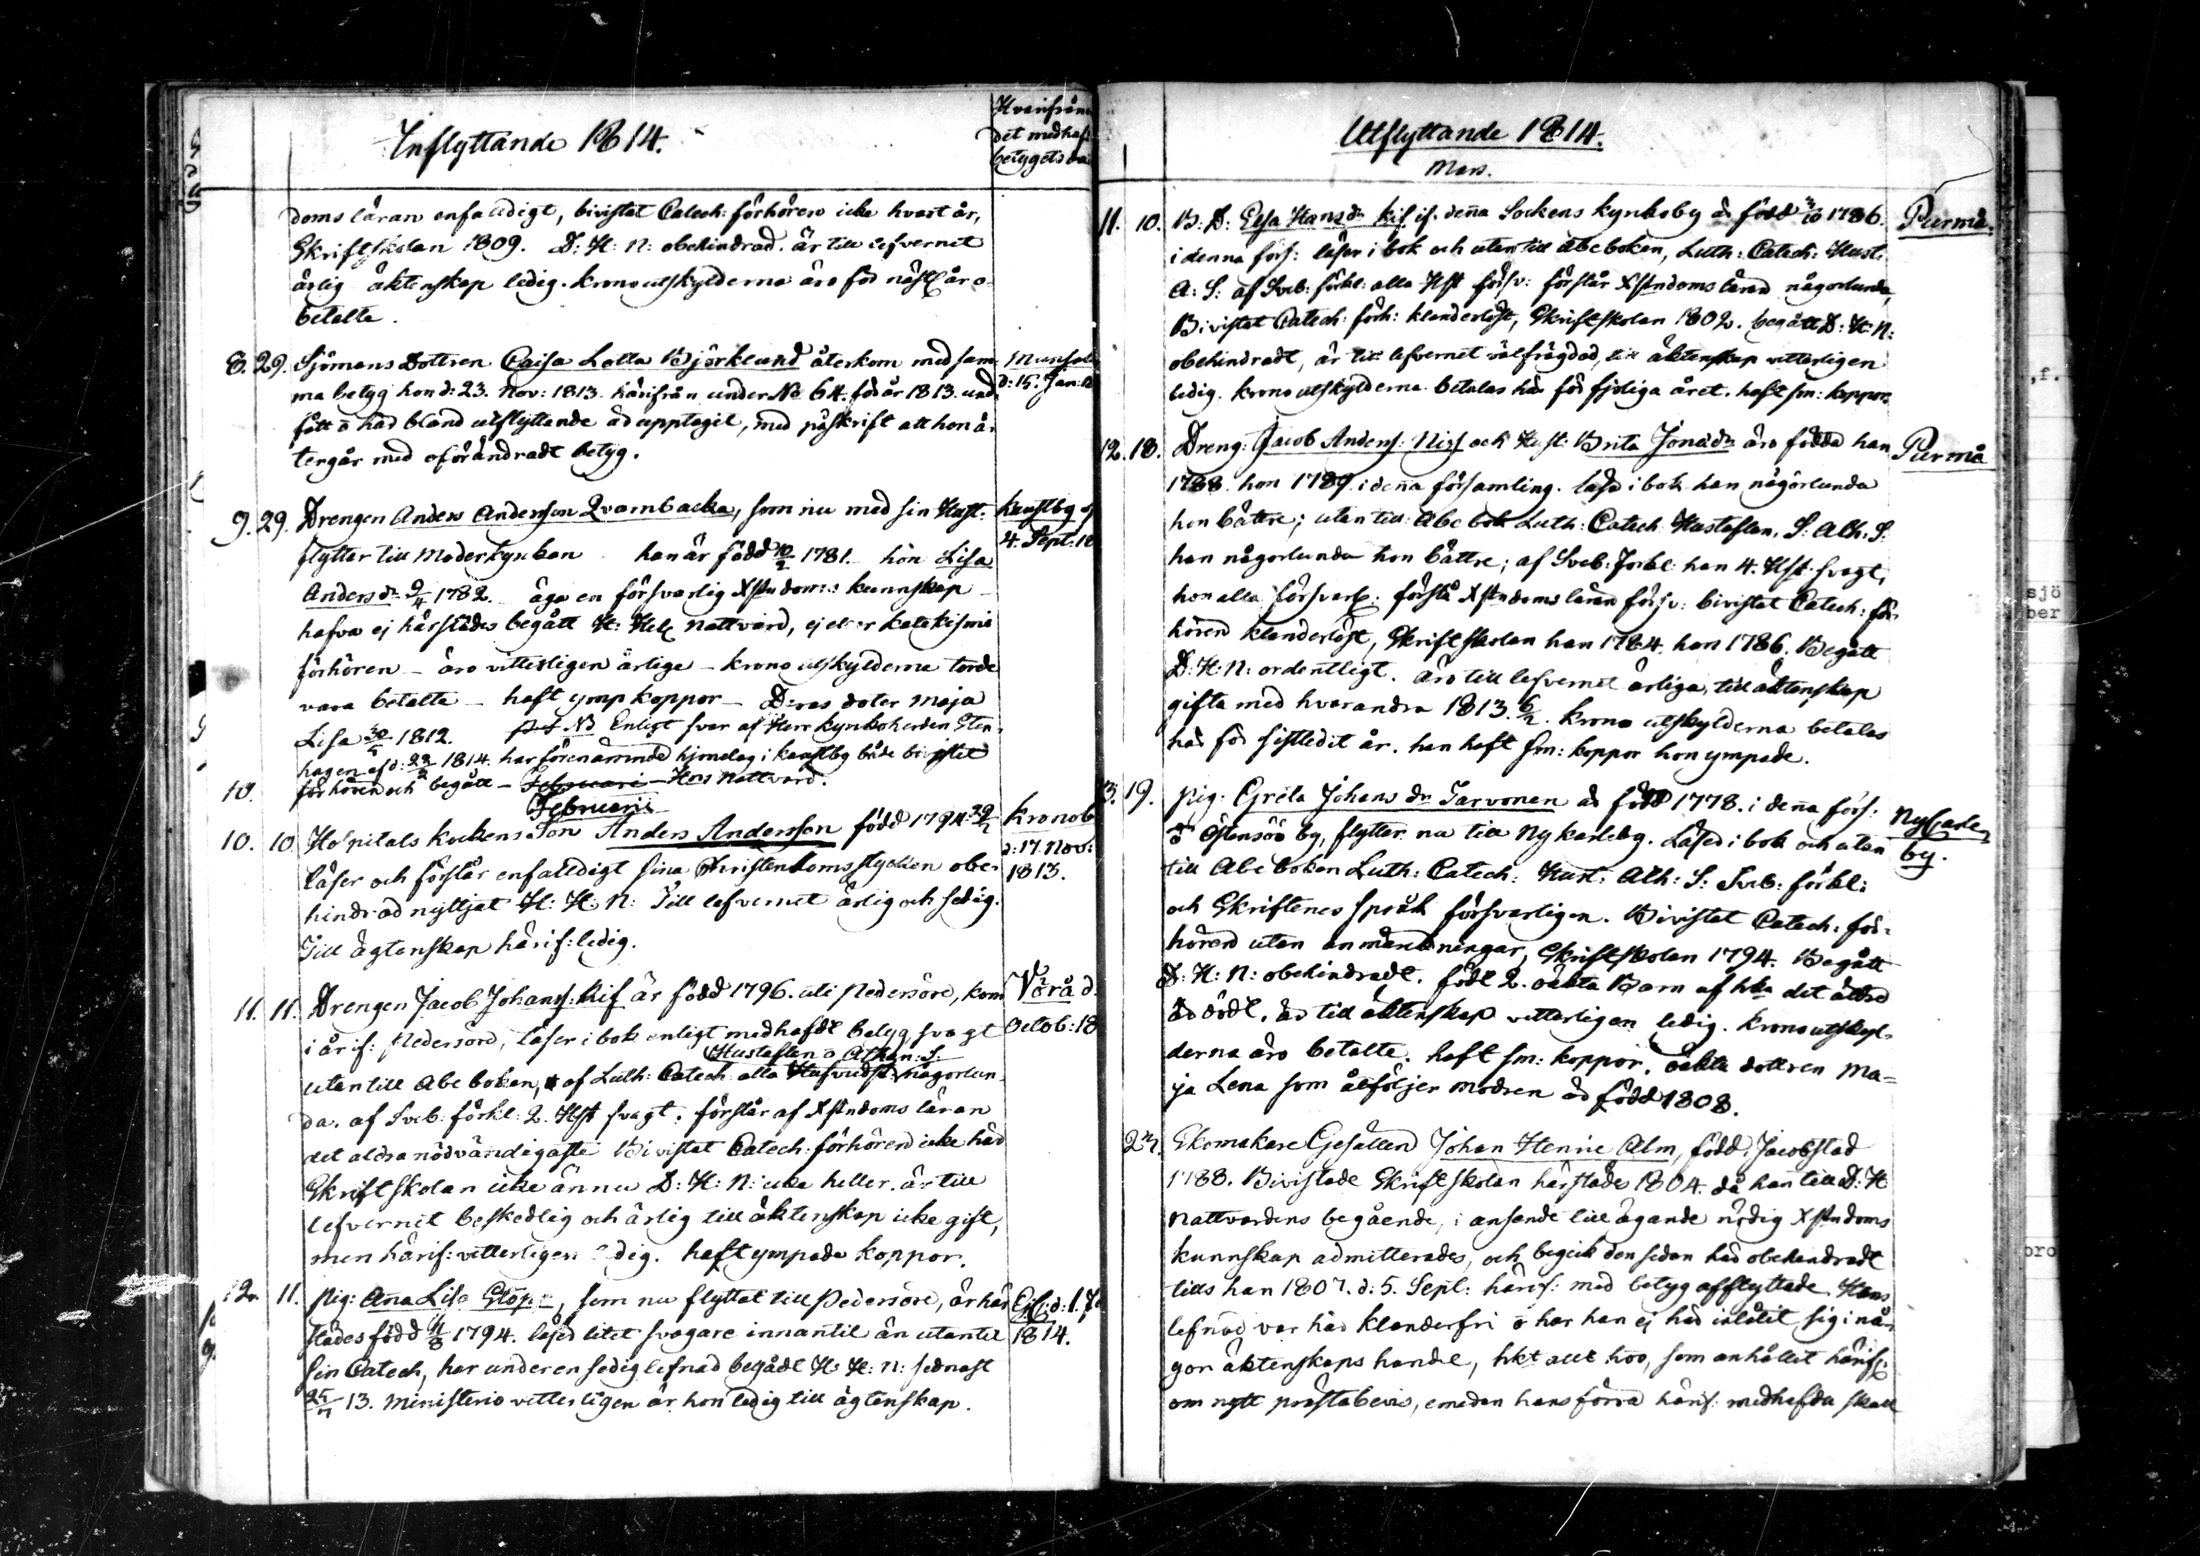 Inflyttande 1814.
Hvarifrån
det medhaf
betygets da
doms läran enfaldigt, bivistat Catech: förhören icke hvart år,
Skriftskolan 1809. D: H: N: obehindrad. är till lefvernet
ärlig äktenskap ledig. Krono utskylderna äro för näst år o-
betalte.
8. 29. Sjömans Dottren Caisa Lotta Björklund återkom med sam-
ma betyg hon d: 23. Nov: 1813. härifrån under No 64. för år 1813. und
fått o här bland utflyttande är upptagit, med påskrift att hon å-
tergår med oförändradt betyg.
Munsala
d: 15. Jan: 18
9. 29. Drengen Anders Andersson Qvarnbacka, som nu med sin Hust:
flytter till Moderkyrkan han är född 10/2 1781. hon Lisa
Anders dr 9/4 1782. äga en försvarlig Xstndoms kunnskap
hafva ej härstädes begått H: Hel nattvard, ej eller katekismi
förhören – äro vitterligen ärlige – krono utskylderne torde
vara betalte – haft ymp koppor – Deras doter Maja
Lisa 30/5 1812. NB Enligt svar af Herr Kyrkoherden Sten-
hagen af d: 22/2 1814. har förenämnde hjonelag i kaustby både bivistat
förhören och begått – Februari Hers Nattvard.
Kaustby d
4. Sept: 18
10.
Februarii
10. 10 Hospitals kockens Son Anders Andersson född 1794
läser och förstår enfalldigt sina Christendomsstycken obe-
hindrad nyttjat H: H: N: Till lefvernet ärlig och sedig.
Till ägtenskap härif: ledig.
Kronob
d: 17. Nov:
1813.
11. 11. Drengen Jacob Johanss: Kif är född 1796. uti Pedersöre, kom
i år if: Pedersöre, läser i bok enligt medhafdt betyg svagt
Hustaflan o Athan: S.
utantill Abc boken, af Luth: Catech: alla Hufvudst: någorlun-
da. af Sveb: förkl: 2. Hst svagt. förstår af Xstndoms läran
det aldra nödvändigaste Bivistat Catech: förhören icke här
Skriftskolan icke ännu D: H: N: icke heller. är till
lefvernet beskedlig och ärlig till äktenskap icke gift,
men härif: vitterligen ledig. haft ympade koppor.
Vörå d.
Octob: 18
12. 11. Pig: Ana Lisa Slöp, som nu flyttat till Pedersöre, är här
städes född 11/8 1794. läser litet svagare innantil än utantil
sin Catech, har under en sedig lefnad begådt H: H: N: sednast
25/7 13. Ministerio vitterligen är hon ledig till ägtenskap.
1814.
Utflyttande 1814.
Mars.
11. 10. B: D: Elsa Hans dr Kif if. denna Sockens kyrkoby är född 3/10 1786.
i denna förs: läser i bok och utantill abc boken, Luth: Catech: Hust:
A: S: af Sveb: förkl: alla Hst försv: förstår Xstndoms läran någorlunda,
Bivistat Catech: förh: klanderlöst, Skriftskolan 1802. begått D: H: N:
obehindradt, är till lefvernet välfrägdad, till äktenskap vitterligen
ledig. krono utskylderna betalas här för fjoliga året. haft sm: koppor.
Purmo.
12. 18. Dreng: Jacob Anders: Nis och Hust: Brita Jonæ dr äro födda han
1788. hon 1789. i denna församling. läsa i bok han någorlunda
hon bättre; utantill Abc bok Luth: Catech Hustaflan. S: Ath: S.
han någorlunda hon bättre; af Sveb: förkl: han 4. Hst. svagt,
hon alla försvarl. förstå Xstndoms läran försv: bivistat Catech: för-
hören klanderlöst, Skriftskolan han 1784. hon 1786. Begått
D: H: N: ordentligt. äro till lefvernet ärliga, till äktenskap
gifta med hvarandra 1813. 6/2. Krono utskylderna betalas
här för sistledit år. han haft sm: koppor hon ympade.
Purmå
13. 19. Pig: Greta Johans dr Tarvonen är född 1778. i denna förs:
o Östensöö by, flytter nu till Nykarleby. Läser i bok och utan
till Abc boken Luth: Catech: Hust: Ath: S: Sveb: förkl:
och Skriftenes språk försvarligen. Bivistat Catech: för-
hören utan anmärkningar, Skriftskolan 1794. Begått
D: H: N: obehindradt. födt 2. oäkta Barn af hka det äldre
är dödt. är till äktenskap vitterligen ledig. krono utskyl-
derna äro betalte. haft sm: koppor. oäkta dottren Ma-
ja Lena som åtföljer modren är född 1808.
Ny Carle
by.
Skomakare Gesällen Johan Henric Alm, född i Jacobstad
1788. Bivistade Skriftskolan härstädes 1804. då han till D: H
Nattvardens begående, i anseende till ägande nödig Xstndoms
kunnskap admitterades, och begick den sedan här obehindradt
tills han 1807. d: 5. Sept: härif: med betyg afflyttade. Hans
lefnad var här klanderfri o har han ej här inlåtit sig i nå-
gon äktenskaps handel, hkt allt hos, som anhållit härif:
om nytt prästabevis, emedan hans förra härif: medhafda skall
sjö
ber